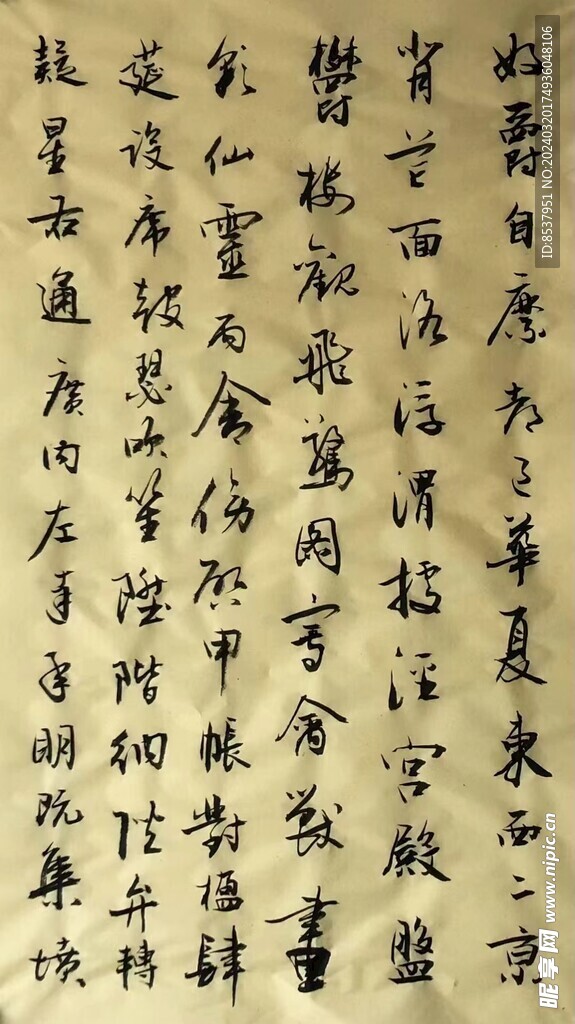 好爵自縻都邑華夏東西二京
背芒面洛浮渭據涇宮殿盤
鬱樓觀飛驚圖寫禽獸畫
彩仙靈丙舍傍啟甲帳對楹肆
筵設席鼓瑟吹笙陞階納陛弁轉
疑星右通廣內左達承明既集墳
ID:8537951 NO:20240320174936048106
昵享网 www.nipic.cn